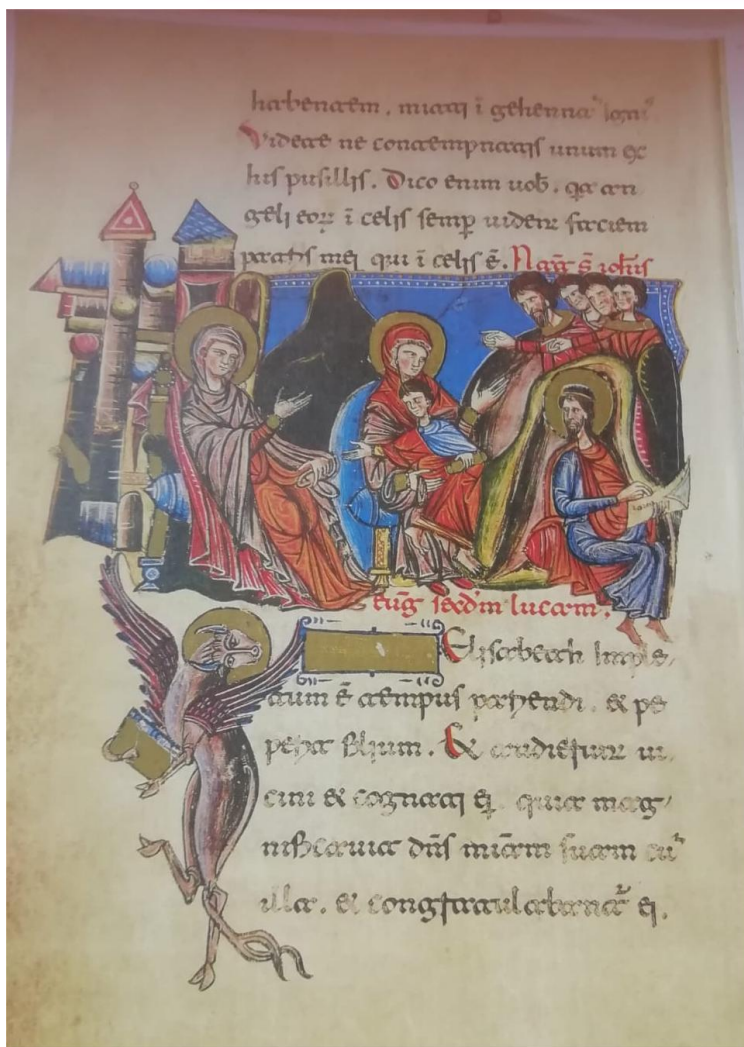 habentem, mitti ī gehennā igni
Videte ne contempnatis unum ex
his pusillis. Dico enim uob̄. qa an
geli eor̄ ī celis semp̄ uident faciem
patris mei qui ī celis ē. Nat̄ s̄ ioh̄is
eūg secd̄m lucam.
Elisabeth imple
tum ē tempus pariendi. et pe
perit filium. Et audierunt ui
cini et cognati ei. quia mag
nificauit dn̄s mi̅am suam cū
illa. et congratulabantur ei.